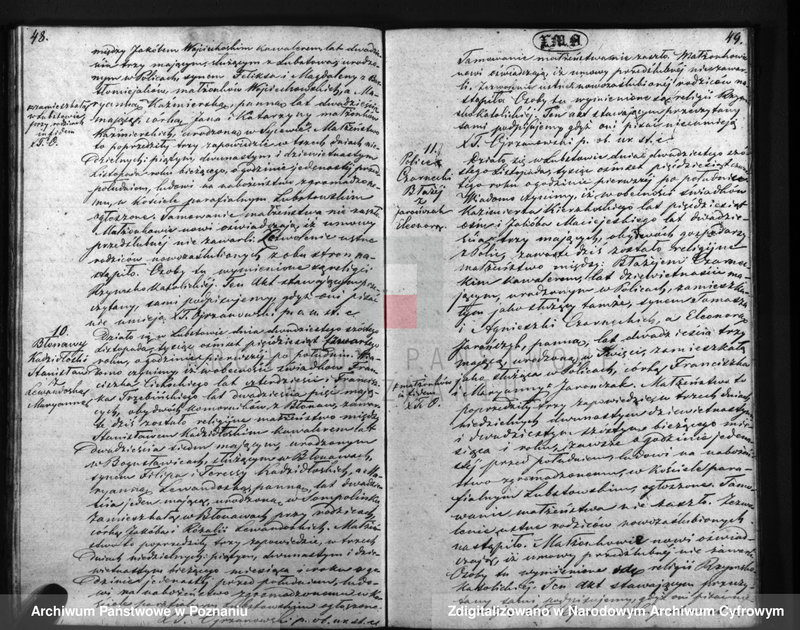 48.
między Jakóbem Wojciechoskim kawalerem, lat dwadzieścia
trzy mającym, służącym z Lubstowa, urodzonym
w Policach, synem Feliksa i Magdaleny z
małżonków Wojciechoskich, a Maryanną
Kaźmierską, panną, lat dwadzieścia
mającą, córką Jana i Katarzyny małżonków
Kaźmierskich, urodzoną w
zamieszkałą
przy rodzicach
Małżeństwo
to poprzedziły trzy zapowiedzie w trzech dniach niedzielnych:
piątym, dwunastym i dziewietnastym
Listopada roku bieżącego, o godzinie jedenastej przed
południem, ludowi na nabożeństwo zgromadzonemu,
w Kościele parafialnym Lubstowskim
ogłoszone. Tamowanie małżeństwa nie zaszło.
Małżonkowie nowi oświadczają, iż umowy
przedślubnej nie zawarli. Zezwolenie ustne
rodziców nowozaślubionych z obu stron nastąpiło.
Osoby tu wymienione są religii
Rzymsko Katolickiej. Ten Akt stawającym przeczytany,
sami podpisujemy, gdyż oni pisać
nie umieją. X. J. Ogrzanowski p. o. u. st. c.
10.
Błonawy
Kadzidłoski
Stanisław
z
Lewandoską
Maryanną
Działo się w Lubstowie dnia dwudziestego szóstego
Listopada, tysiąc ośmset pięćdziesiąt czwartego
roku, o godzinie pierwszej po południu. Wiadomo
czynimy, iż w obecności świadków Franciszka
Cichockiego lat czterdzieści i Franciszka
lat dwadzieścia pięć mających,
obydwóch komorników, z Błonaw, zawarte
dziś zostało religijne małżeństwo między
Stanisławem Kadzidłoskim kawalerem, lat
dwadzieścia siedem mającym, urodzonym
w Bogusławicach, służącym w Błonawach,
synem Filipa i Teresy Kadzidłoskich, a Maryanną
Lewandoską panną, lat dwadzieścia
jeden mającą, urodzoną w Sompolinku
zamieszkałą w Błonawach przy rodzicach,
córką Jakóba i Rozalii Lewandoskich. Małżeństwo
to poprzedziły trzy zapowiedzie, w trzech
dniach niedzielnych: piątym, dwunastym i dziewietnastym
bieżącego miesiąca i roku o godzinie
jedenastej przed południem, ludowi
na nabożeństwo zgromadzonemu w
ogłoszone.
X. J. Ogrzanowski p. ob. ur. st. c.
49.
Tamowanie małżeństwa nie zaszło. Małżonkowie
nowi oświadczają, iż umowy przedślubnej nie zawarli.
Zezwolenie ustne nowozaślubionej rodziców nastąpiło.
Osoby tu wymienione są religii Rzymsko
Katolickiej. Ten akt stawającym przeczytany
sami podpisujemy gdyż oni pisać nie umieją
X. J. Ogrzanowski p. ob. ur. st. c.
11.
Police
Czarnecki
Błażej
z
Jarończak
Eleonorą.
Działo się w Lubstowie dnia dwudziestego szóstego
Listopada, tysiąc ośmset pięćdziesiąt czwartego
roku o godzinie pierwszej po południu.
Wiadomo czynimy, iż w obecności świadków
Kazimierza Kierakoskiego lat pięćdziesiąt
ośm i Jakóba Maciejeskiego lat dwadzieścia
trzy mających, obydwóch gospodarzy
z Polic, zawarte dziś zostało religijne
małżeństwo między: Błażejem Czarneckim
kawalerem, lat dziewietnaście mającym,
urodzonym w Policach, zamieszkałym
jako służący tamże, synem Tomasza
i Agnieszki Czarneckich, a Eleonorą
Jarończyk, panną, lat dwadzieścia trzy
mającą, urodzoną w zamieszkałą
jako służąca w Policach, córką Franciszka
i Maryanny
małżonków
Jarończak. Małżeństwo to
poprzedziły trzy zapowiedzie, w trzech dniach
niedzielnych dwunastym dziewietnastym
i dwudziestym szóstym bieżącego miesiąca
i roku, zawsze o godzinie jedenastej
przed południem, ludowi na nabożeństwo
zgromadzonemu, w Kościele parafialnym
Lubstowskim, ogłoszone. Tamowanie
małżeństwa nie zaszło. Zezwolenie
ustne rodziców nowozaślubionych
nastąpiło. Małżonkowie nowi oświadczają,
iż umowy przedślubnej nie zawarli
Osoby tu wymienione są religii Rzymsko
Katolickiej. Ten Akt stawającym przeczytany
sami podpisujemy, gdyż oni pisać nie
Archiwum Państwowe w Poznaniu
Zdigitalizowano w Narodowym Archiwum Cyfrowym